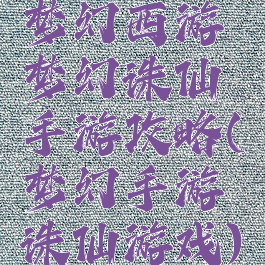 梦幻西游
梦幻诛仙
手游攻略(
梦幻手游
诛仙游戏)